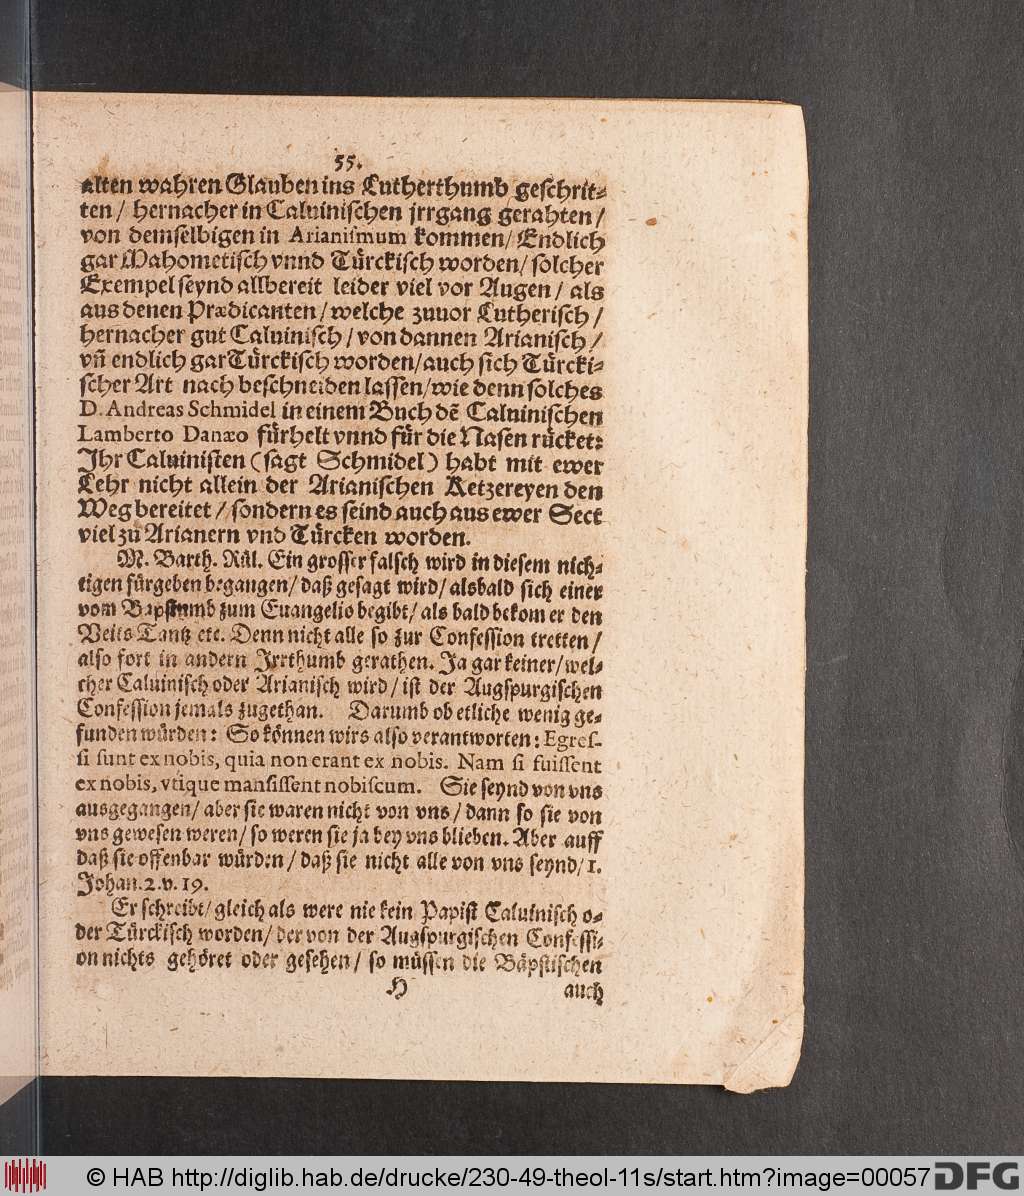 55.
alten wahren Glauben ins Lutherthumb geschrit⸗
ten / hernacher in Caluinischen jrrgang gerahten /
von demselbigen in Arianiſmum kommen / Endlich
gar Mahometisch vnnd Türckisch worden / solcher
Exempel seynd allbereit leider viel vor Augen / als
aus denen Prædicanten / welche zuuor Lutherisch /
hernacher gut Caluinisch / von dannen Arianisch /
vn̄ endlich gar Türckisch worden / auch sich Türcki⸗
scher Art nach beschneiden lassen / wie denn solches
D. Andreas Schmidel in einem Buch dē Caluinischen
Lamberto Danæo fürhelt vnnd für die Nasen rücket:
Jhr Caluinisten (sagt Schmidel) habt mit ewer
Lehr nicht allein der Arianischen Ketzereyen den
Weg bereitet / sondern es seind auch aus ewer Sect
viel zu Arianern vnd Türcken worden.
M. Barth. Rül. Ein grosser falsch wird in diesem nich⸗
tigen fürgeben begangen / daß gesagt wird / alsbald sich einer
vom Bapstumb zum Euangelio begibt / als bald bekom er den
Veits Tantz etc. Denn nicht alle so zur Confession tretten /
also fort in andern Jrrthumb gerathen. Ja gar keiner / wel⸗
cher Caluinisch oder Arianisch wird / ist der Augspurgischen
Confession jemals zugethan. Darumb ob etliche wenig ge⸗
funden würden: So können wirs also verantworten: Egreſ-
ſi ſunt ex nobis, quia non erant ex nobis. Nam ſi fuiſſent
ex nobis, vtique manſiſſent nobiſcum. Sie seynd von vns
ausgegangen / aber sie waren nicht von vns / dann so sie von
vns gewesen weren / so weren sie ja bey vns blieben. Aber auff
daß sie offenbar würden / daß sie nicht alle von vns seynd / 1.
Johan. 2. v. 19.
Er schreibt / gleich als were nie kein Papist Caluinisch o⸗
der Türckisch worden / der von der Augspurgischen Confessi⸗
on nichts gehöret oder gesehen / so müssen die Bäpstischen
H auch
© HAB http://diglib.hab.de/drucke/230-49-theol-11s/start.htm?image=00057
DFG